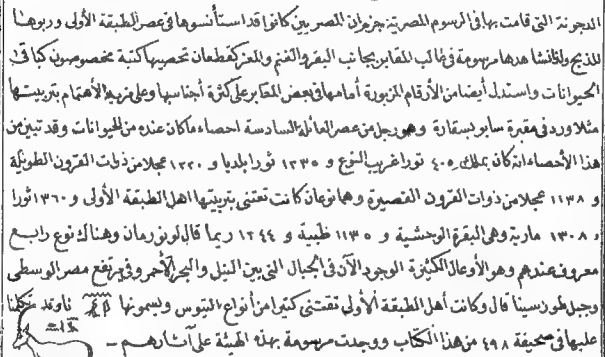 الدجونة التى قامت بها فى الرسوم المصرية جزم ان المصريين كانوا قد استأنسوها فى عصر الطبقة الأولى وربوها
للذبح ولذا نشاهدها مرسومة فى غالب المقابر بجانب البقر والغنم والمعز كقطعان تحصيها كتبة مخصوصون كباقى
الحيوانات واستدل أيضا من الأرقام المزبورة أمامها فى بعض المقابر على كثرة أجناسها وعلى مزيد الأهتمام بتربيتها
مثلا ورد فى مقبرة سابو بسقارة وهو رجل من عصر العائلة السادسة احصاء ما كان عنده من الحيوانات وقد تبين من
هذا الأحصاء انه كان يملك ٤٠٥ ثورا غريب النوع و ١٢٣٥ ثورا بلديا و ١٢٢٠ عجلا من ذوات القرون الطويلة
و ١١٣٨ عجلا من ذوات القرون القصيرة وهما نوعان كانت تعتنى بتربيتها اهل الطبقة الأولى و ١٣٦٠ ثورا
و ١٣٠٨ مارية وهى البقرة الوحشية و ١١٣٥ ظبية و ١٢٤٤ ريما قال لونورمان وهناك نوع رابع
معروف عندهم وهو الأوعال الكثيرة الوجود الآن فى الجبال التى بين النيل والبحر الأحمر وفى مرتفع مصر الوسطى
وجبل طور سينا قال وكانت أهل الطبقة الأولى تقتنى كثيرا من أنواع التيوس ويسمونها ناو وقد تكلمنا
عليها فى صحيفة ٤٩٨ من هذا الكتاب ووجدت مرسومة بهذه الهيئة على آثارهم -